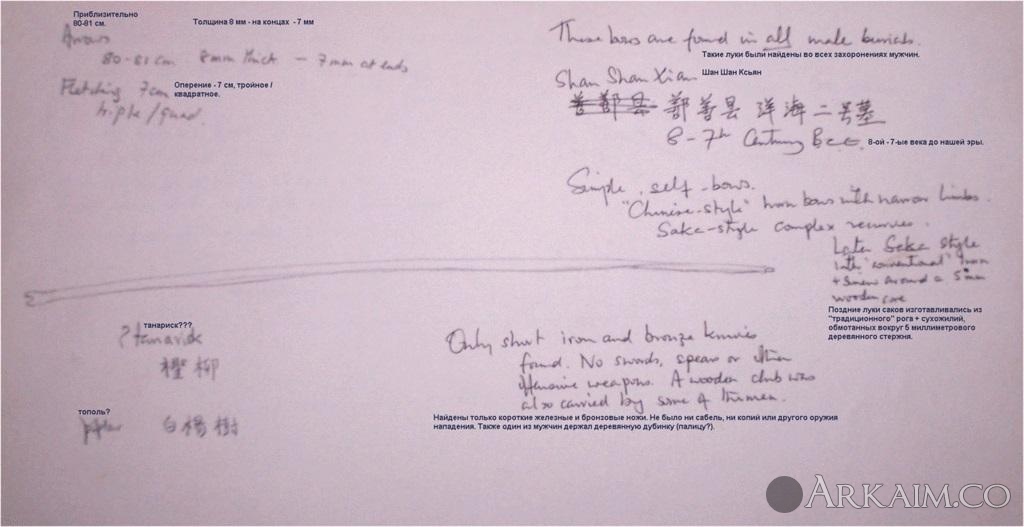 Приблизительно
80-81 см.
Толщина 8 мм - на концах - 7 мм
Arrows
80-81cm 8mm thick – 7mm at ends
Fletching 7cm
triple/quad.
Оперение - 7 см, тройное /
квадратное.
These bows are found in all male burials.
Такие луки были найдены во всех захоронениях мужчин.
Shan Shan Xian
Шан Шан Ксьян
鄯善县 洋海二号墓
8-7th Century BCE.
8-ой - 7-ые века до нашей эры.
Simple, self-bows.
"Chinese-style" horn bows with narrow limbs.
Saka-style complex recurves.
Later Saka style
with "conventional" horn
+ sinew around a 5mm
wooden core
Поздние луки саков изготавливались из
"традиционного" рога + сухожилий,
обмотанных вокруг 5 миллиметрового
деревянного стержня.
танариск???
? tamarisk
柽柳
тополь?
poplar 白楊樹
Only short iron and bronze knives
found. No swords, spears or other
offensive weapons. A wooden club was
also carried by some of the men.
Найдены только короткие железные и бронзовые ножи. Не было ни сабель, ни копий или другого оружия
нападения. Также один из мужчин держал деревянную дубинку (палицу?).
ARKAIM.CO